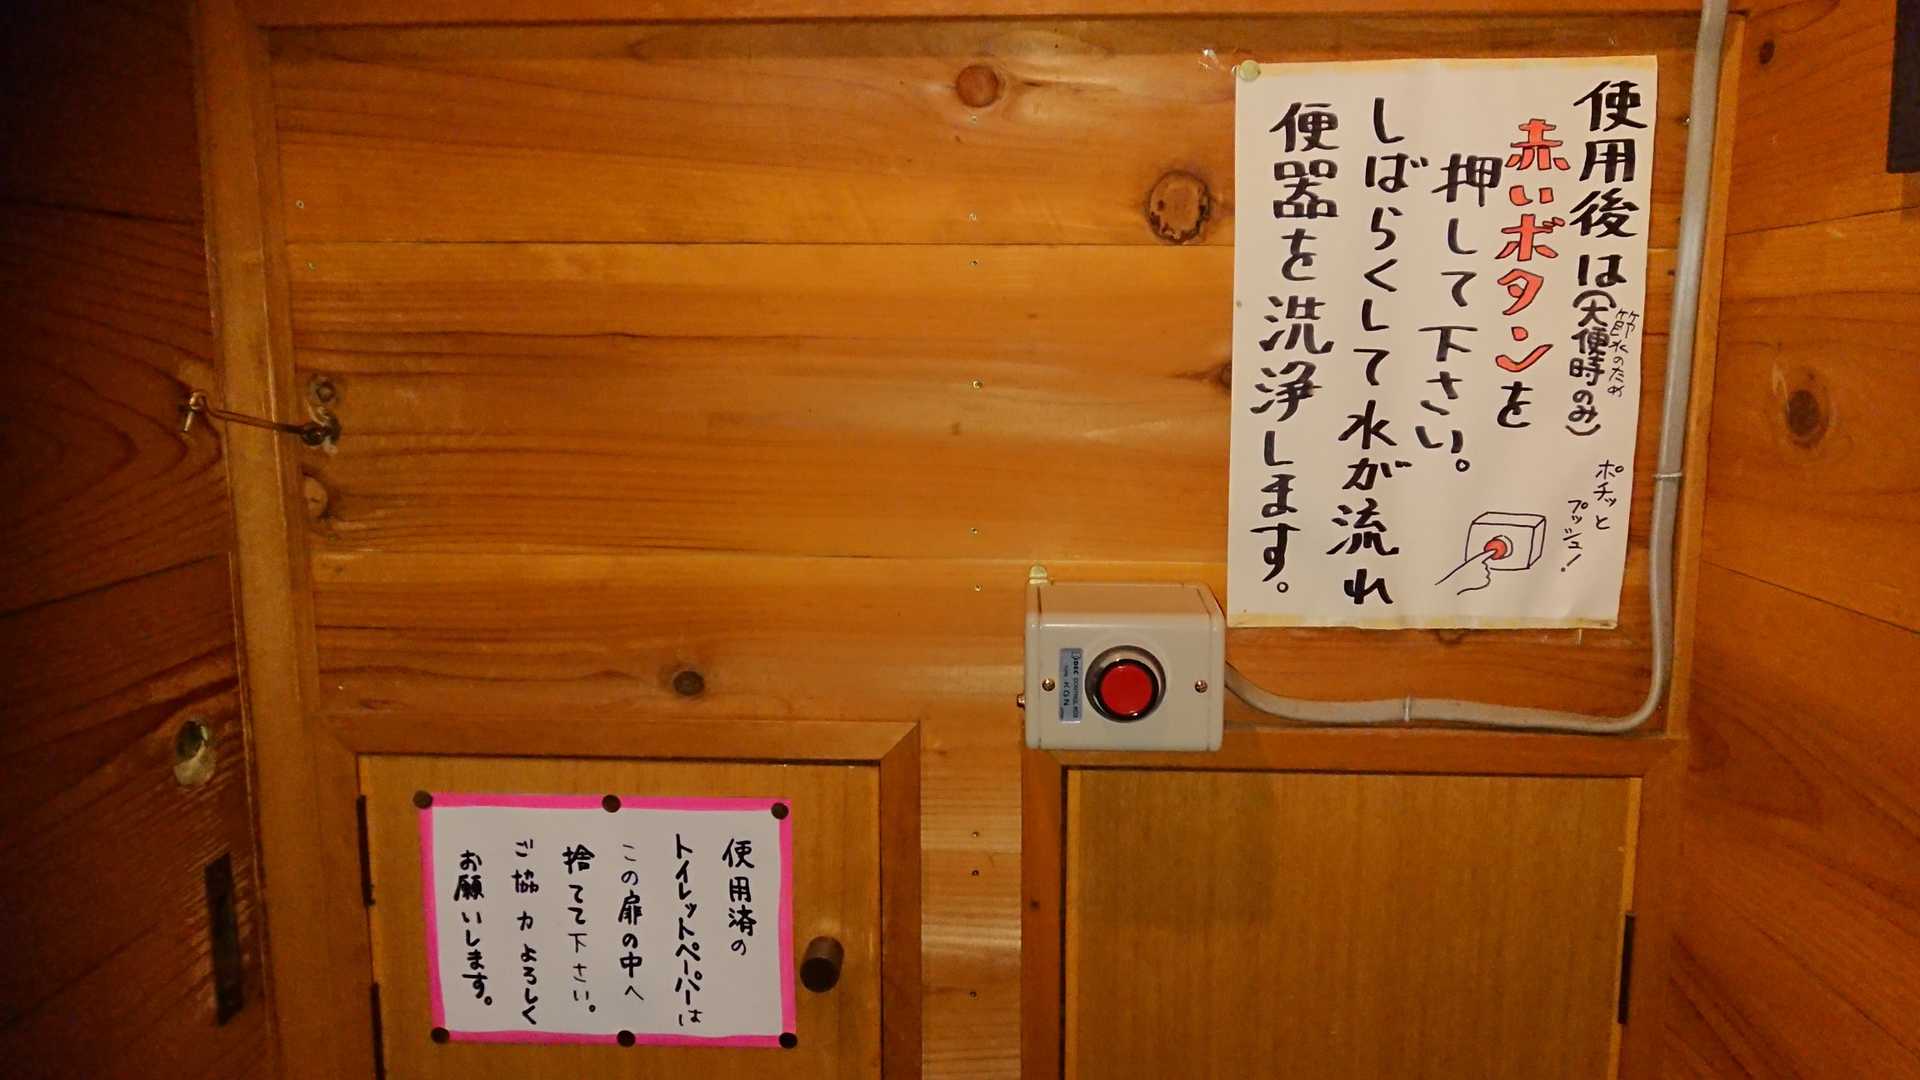 使用後は(大便時のみ)
節水のため
赤いボタンを
押して下さい。
しばらくして水が流れ
便器を洗浄します。
ポチッと
プッシュ!
IDEC CONTROL BOX
TYPE KGN
使用済の
トイレットペーパーは
この扉の中へ
捨てて下さい。
ご協力よろしく
お願いします。